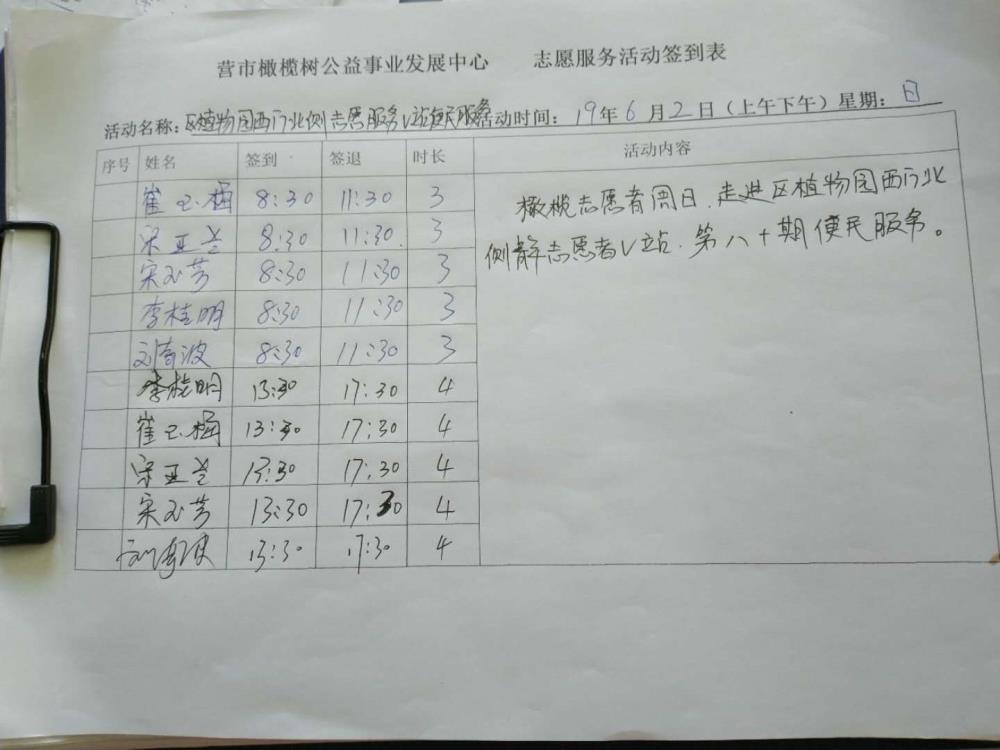 营市橄榄树公益事业发展中心 志愿服务活动签到表
活动名称：区植物园西门北侧志愿服务V站便民服务 活动时间：19年6月2日（上午下午）星期：日
序号 姓名 签到 签退 时长 活动内容
崔玉梅 8:30 11:30 3
宋亚兰 8:30 11:30 3
宋玉芳 8:30 11:30 3
李桂明 8:30 11:30 3
刘 波 8:30 11:30 3
李桂明 13:30 17:30 4
崔玉梅 13:30 17:30 4
宋亚兰 13:30 17:30 4
宋玉芳 13:30 17:30 4
刘 波 13:30 17:30 4
橄榄志愿者周日.走进区植物园西门北
侧 志愿者V站.第八十期便民服务。